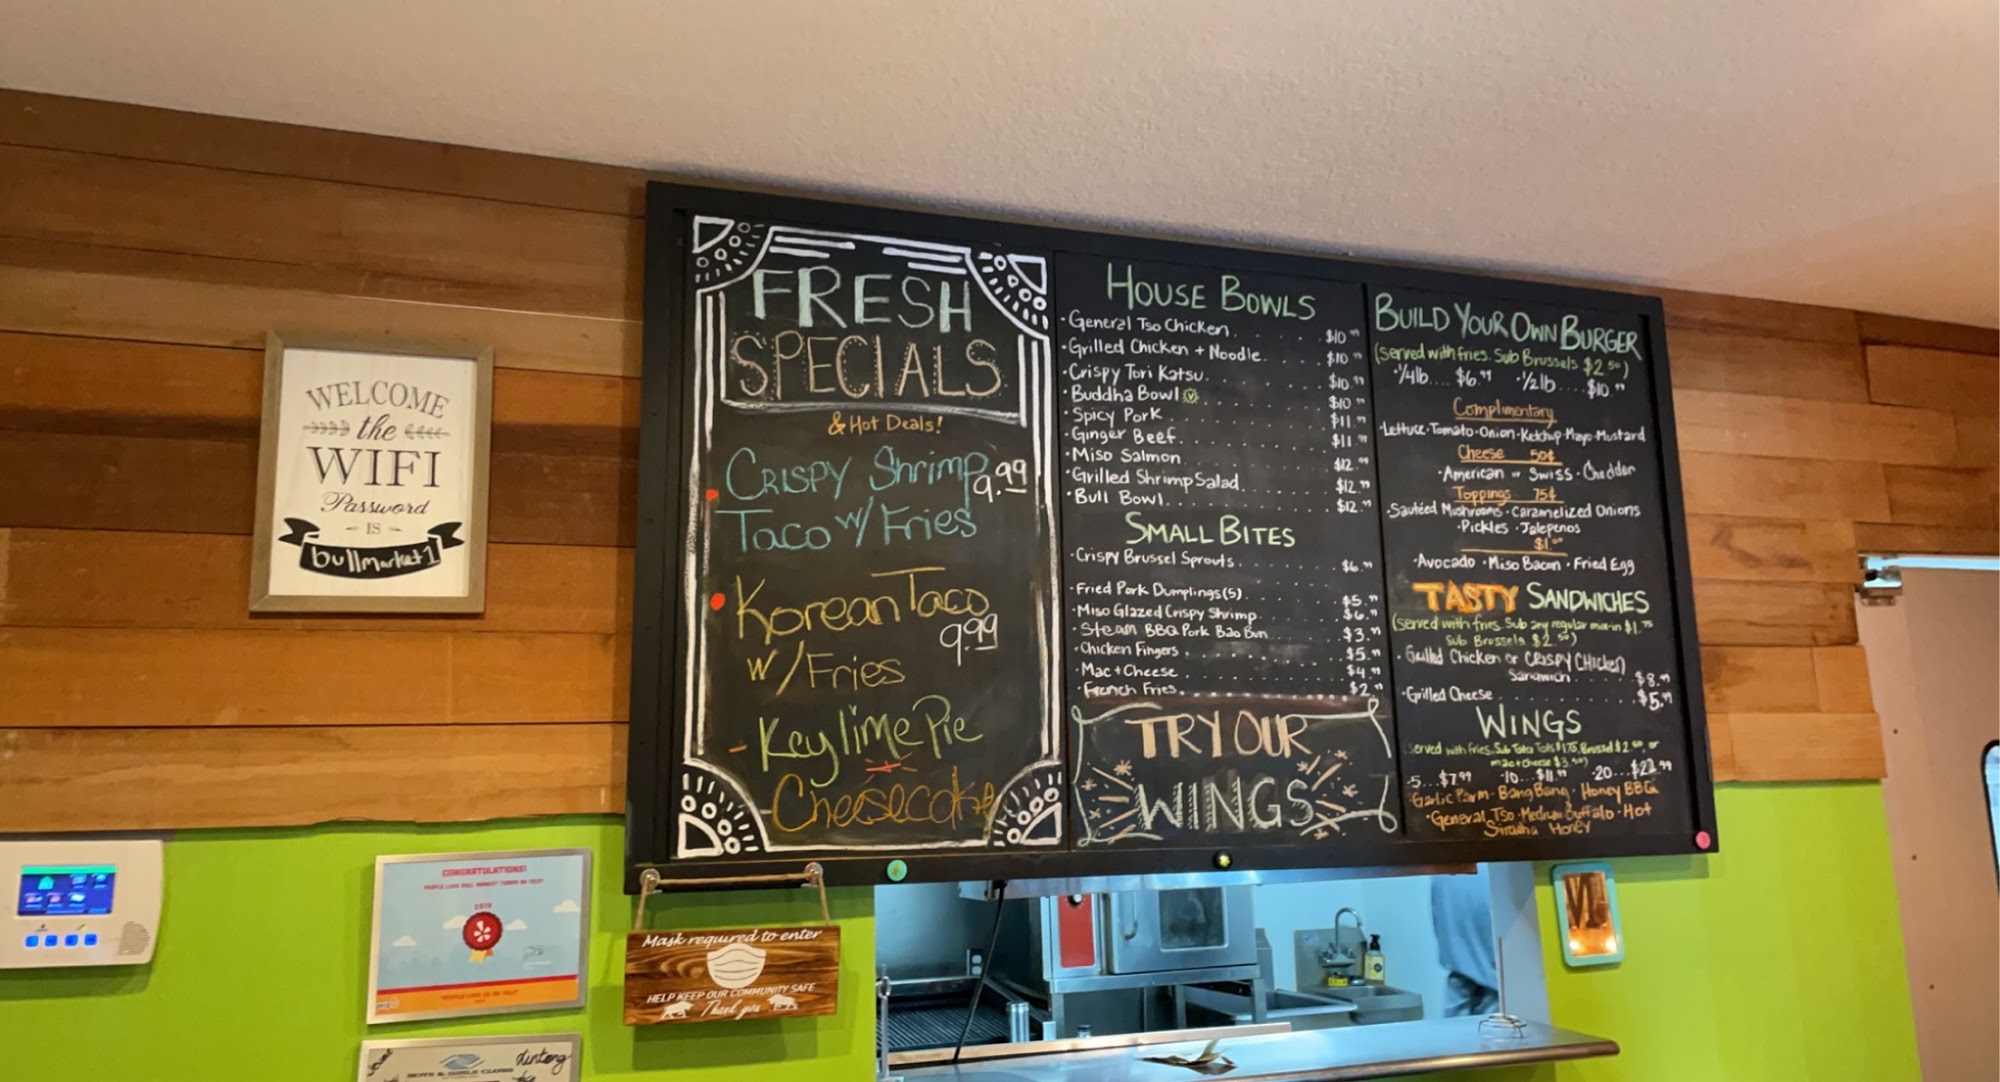 WELCOME
the
WIFI
Password
IS
bullmarket1
FRESH
SPECIALS
& Hot Deals!
Crispy Shrimp 9.99
Taco w/ Fries
Korean Taco
9.99
w/ Fries
- Key lime Pie
- Cheesecake
HOUSE BOWLS
·General Tso Chicken. . . . $10.99
·Grilled Chicken + Noodle. . . . $10.99
·Crispy Tori Katsu. . . . $10.99
·Buddha Bowl V . . . . $10.99
·Spicy Pork . . . . $11.99
·Ginger Beef. . . . $11.99
·Miso Salmon . . . . $12.99
·Grilled Shrimp Salad. . . . $12.99
·Bull Bowl. . . . $12.99
SMALL BITES
·Crispy Brussel Sprouts . . . . $6.99
·Fried Pork Dumplings (5) . . . . $5.99
·Miso Glazed Crispy Shrimp. . . . $6.99
·Steam BBQ Pork Bao Bun . . . . $3.99
·Chicken Fingers . . . . $5.99
·Mac + Cheese . . . . $4.99
·French Fries. . . . $2.99
TRY OUR
WINGS
BUILD YOUR OWN BURGER
(served with fries. Sub Brussels $2.50)
·1/4lb.... $6.99 ·1/2lb ....$10.99
Complimentary
·Lettuce·Tomato·Onion·Ketchup·Mayo·Mustard
Cheese 50¢
·American or Swiss·Cheddar
Toppings 75¢
·Sautéed Mushrooms·Caramelized Onions
·Pickles ·Jalepenos
$1.00
·Avocado ·Miso Bacon ·Fried Egg
TASTY SANDWICHES
(served with fries. Sub any regular mix-in $1.75
Sub Brussels $2.50)
·Grilled Chicken or CRISPY CHICKEN
Sandwich . . . . $8.99
·Grilled Cheese . . . . $5.99
WINGS
(served with fries. Sub Tater Tots $1.75, Brussel $2.50, or
mac+cheese $3.50)
·5...$7.99 ·10...$11.99 ·20...$21.99
·Garlic Parm·Bang Bang·Honey BBQ
·General Tso·Medium Buffalo·Hot
Siracha Honey
CONGRATULATIONS!
PEOPLE LOVE BULL MARKET TEMPE ON YELP!
"PEOPLE LOVE US ON YELP"
Mask required to enter
HELP KEEP OUR COMMUNITY SAFE
Thank you
BOYS & GIRLS CLUBS